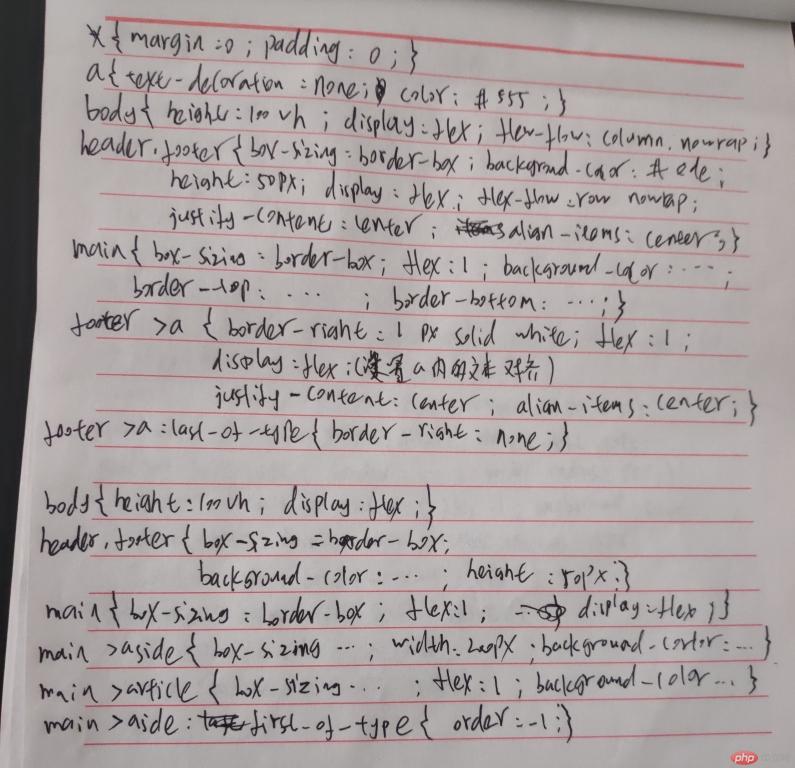 *{ margin:0; padding: 0;}
a{ text-decoration:none; color: #555;}
body{ height:100vh; display:flex; flex-flow: column. nowrap;}
header.footer{ box-sizing:border-box; background-color:#ede;
height:50px; display:flex; flex-flow:row nowrap;
justify-content:center; alian-items:center;}
main{ box-sizing:border-box; flex:1; background-color:...;
border-top:...; border-bottom:...;}
footer >a { border-right:1px solid white; flex:1;
display:flex;(设置a内的文本对齐)
justify-content:center; alian-items:center;}
footer >a:last-of-type{ border-right:none;}
body{ height:100vh; display:flex;}
header.footer{ box-sizing:border-box;
background-color:...; height:50px;}
main{ box-sizing:border-box; flex:1; display:flex;}
main >aside{ box-sizing...; width:200px;background-cortor:...}
main >article{ box-sizing...; flex:1; background-color...}
main >aide:first-of-type{ order:-1;}
php